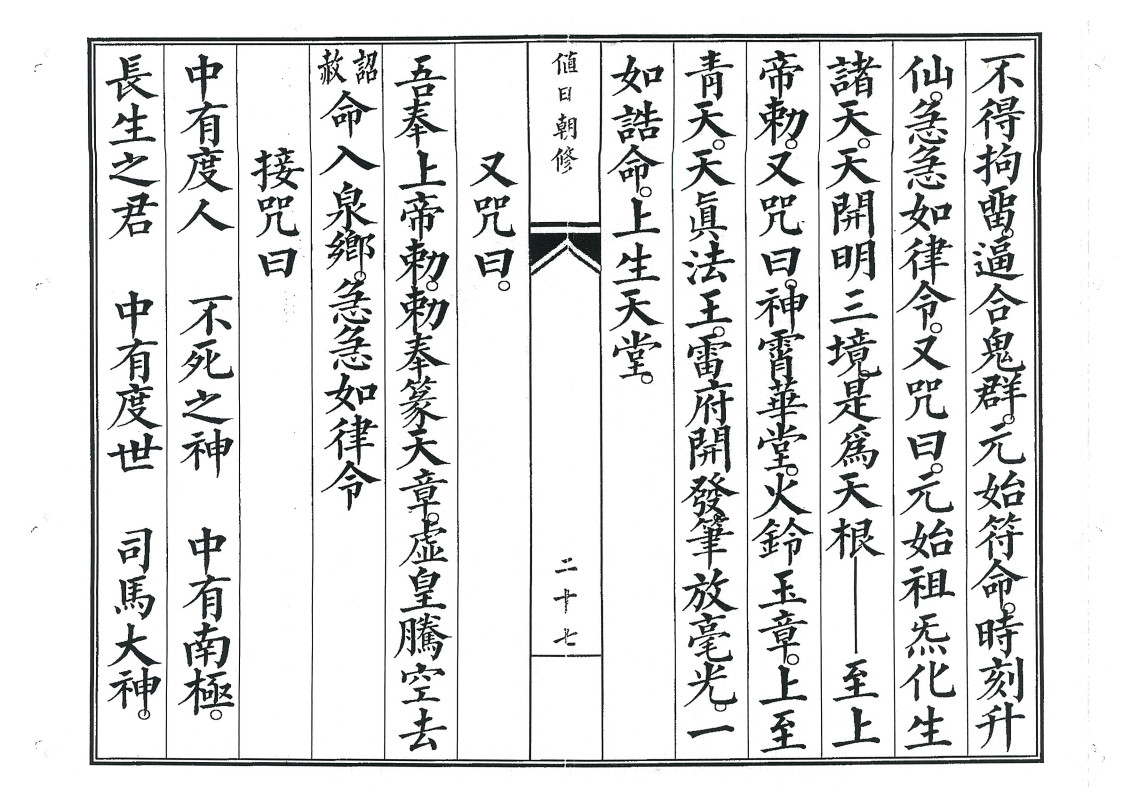 不得拘畱。逼合鬼群。元始符命。時刻升
仙。急急如律令。又咒曰。元始祖炁化生
諸天。天開明三境。是爲天根——至上
帝勅。又咒曰。神霄華堂。火鈴玉章。上至
青天。天眞法王。雷府開發。筆放毫光。一
如誥命。上生天堂。
值日朝修
二十七
又咒曰。
吾奉上帝勅。勅奉篆天章。虛皇騰空去
詔赦命入泉鄉。急急如律令
接咒曰
中有度人 不死之神 中有南極。
長生之君 中有度世 司馬大神。